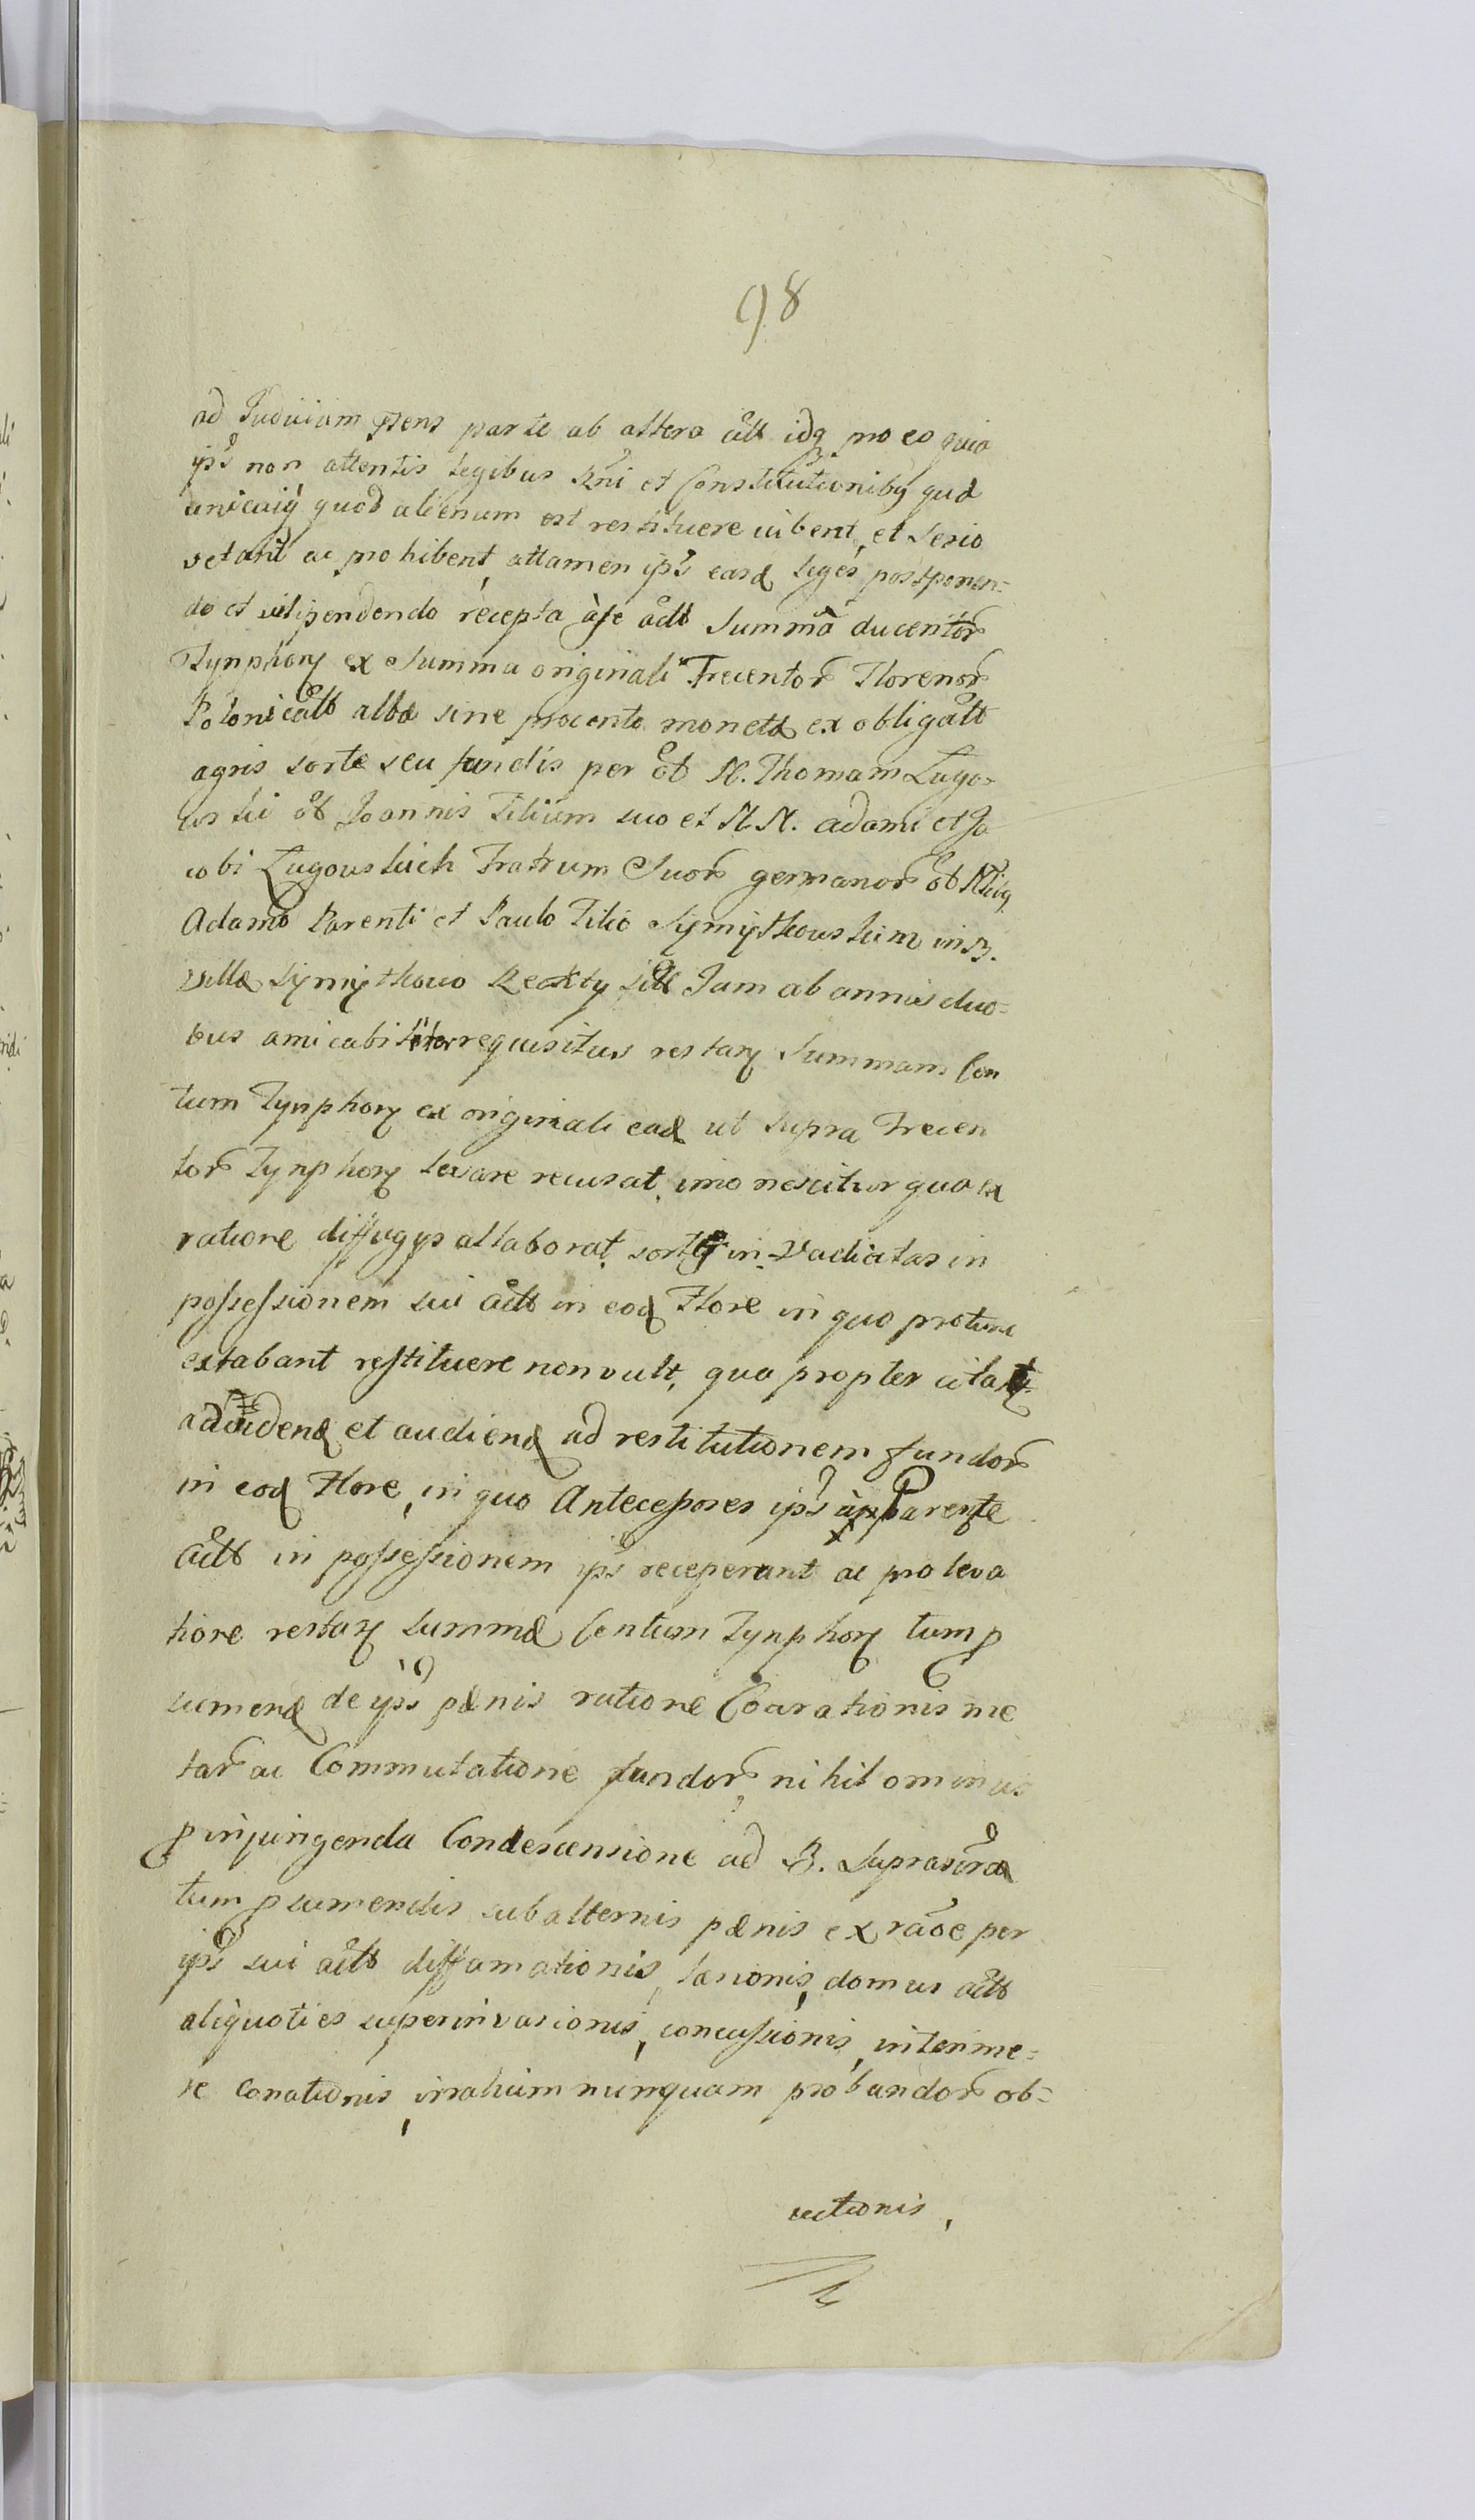 98
ad Judicium psens parte ab altera citt idq pro eo quia
ips non attentis legibus Rni et Constitutionibq quæ
unicuiq quod alienum est restituere iubent, et serio
vetant ac prohibent, attamen ips easd leges postponen=
do et vilipendendo recepta àse actt Summa ducentor
Tynphorz ex Summa originali Trecentor Florenor
Polonicatt albæ sine procento monetæ ex obligatt
agris sorte seu fundis per ot N. Thomam Lugo-
wski ot Joannis Filium suo et N N. Adami et Ja
cobi Lugowskich Fratrum Suor germanor ot Nlibq
Adamo Parenti et Paulo Filio Symythowskim in B.
villa Symythowo sitt Jam ab annis duo=
bus amicabiliter requisitus restarz Summam Cen
tum Tynphorz ex originali ead ut supra Trecen
tor Tynphorz levare recusat, imo nescitur qua ex
ratione diffugys allaborat, sortes in-vadiatas in
possessionem sui actt in eod Flore in quo protunc
extabant restituere non vult, qua propter
ad vidend et audiend ad restitutionem fundor
in eod Flore, in quo Antecessores ips a Parente
actt in possessionem ips receperunt ac pro leva
tione restarz summæ Centum Tynphorz tum p
sumend de ips pænis ratione Coarationis me
tar ac Commutatione fundor, nihilominus
p injungenda Condescensione ad B. suprascrd
tum p sumendis subalternis pænis ex raoe per
ips sui actt diffamationis, læsionis, domus actt
aliquoties superinvasionis, concussionis, interime=
re Conationis, irratium nunquam probandor ob=
uctionis,